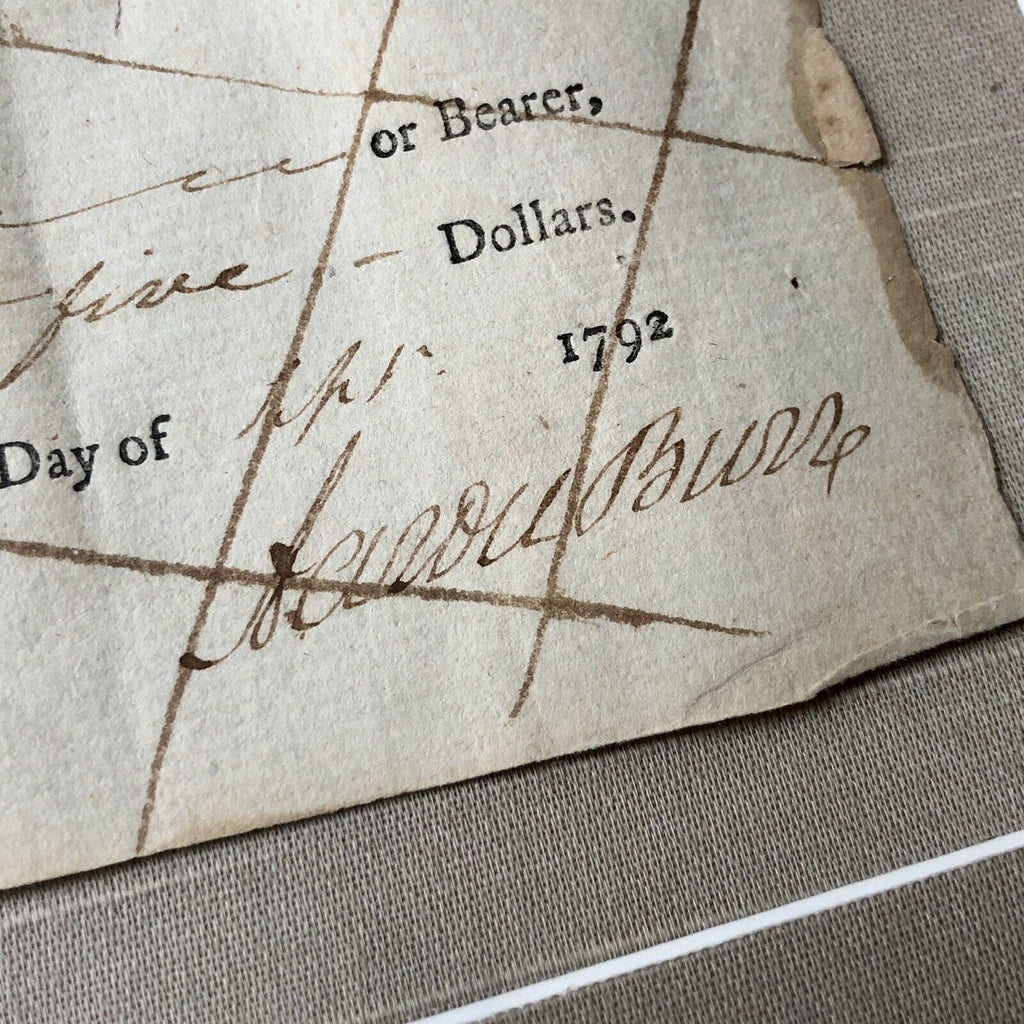 or Bearer,
five - Dollars.
Day of Apr. 1792
Aaron Burr